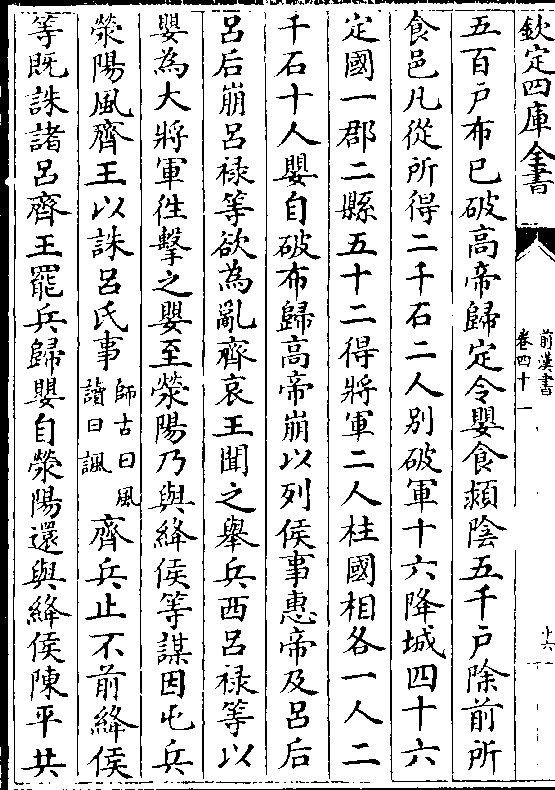 欽定四庫全書
前漢書
卷四十一
十六
五百戶布已破髙帝歸定令嬰食潁陰五千戶除前所
食邑凡從所得二千石二人别破軍十六降城四十六
定國一郡二縣五十二得將軍二人柱國相各一人二
千石十人嬰自破布歸髙帝崩以列侯事惠帝及呂后
呂后崩呂禄等欲為亂齊哀王聞之舉兵西呂禄等以
嬰為大將軍徃擊之嬰至滎陽乃與絳侯等謀因屯兵
滎陽風齊王以誅呂氏事師古曰風讀曰諷齊兵止不前絳侯
等既誅諸呂齊王罷兵歸嬰自滎陽還與絳侯陳平共